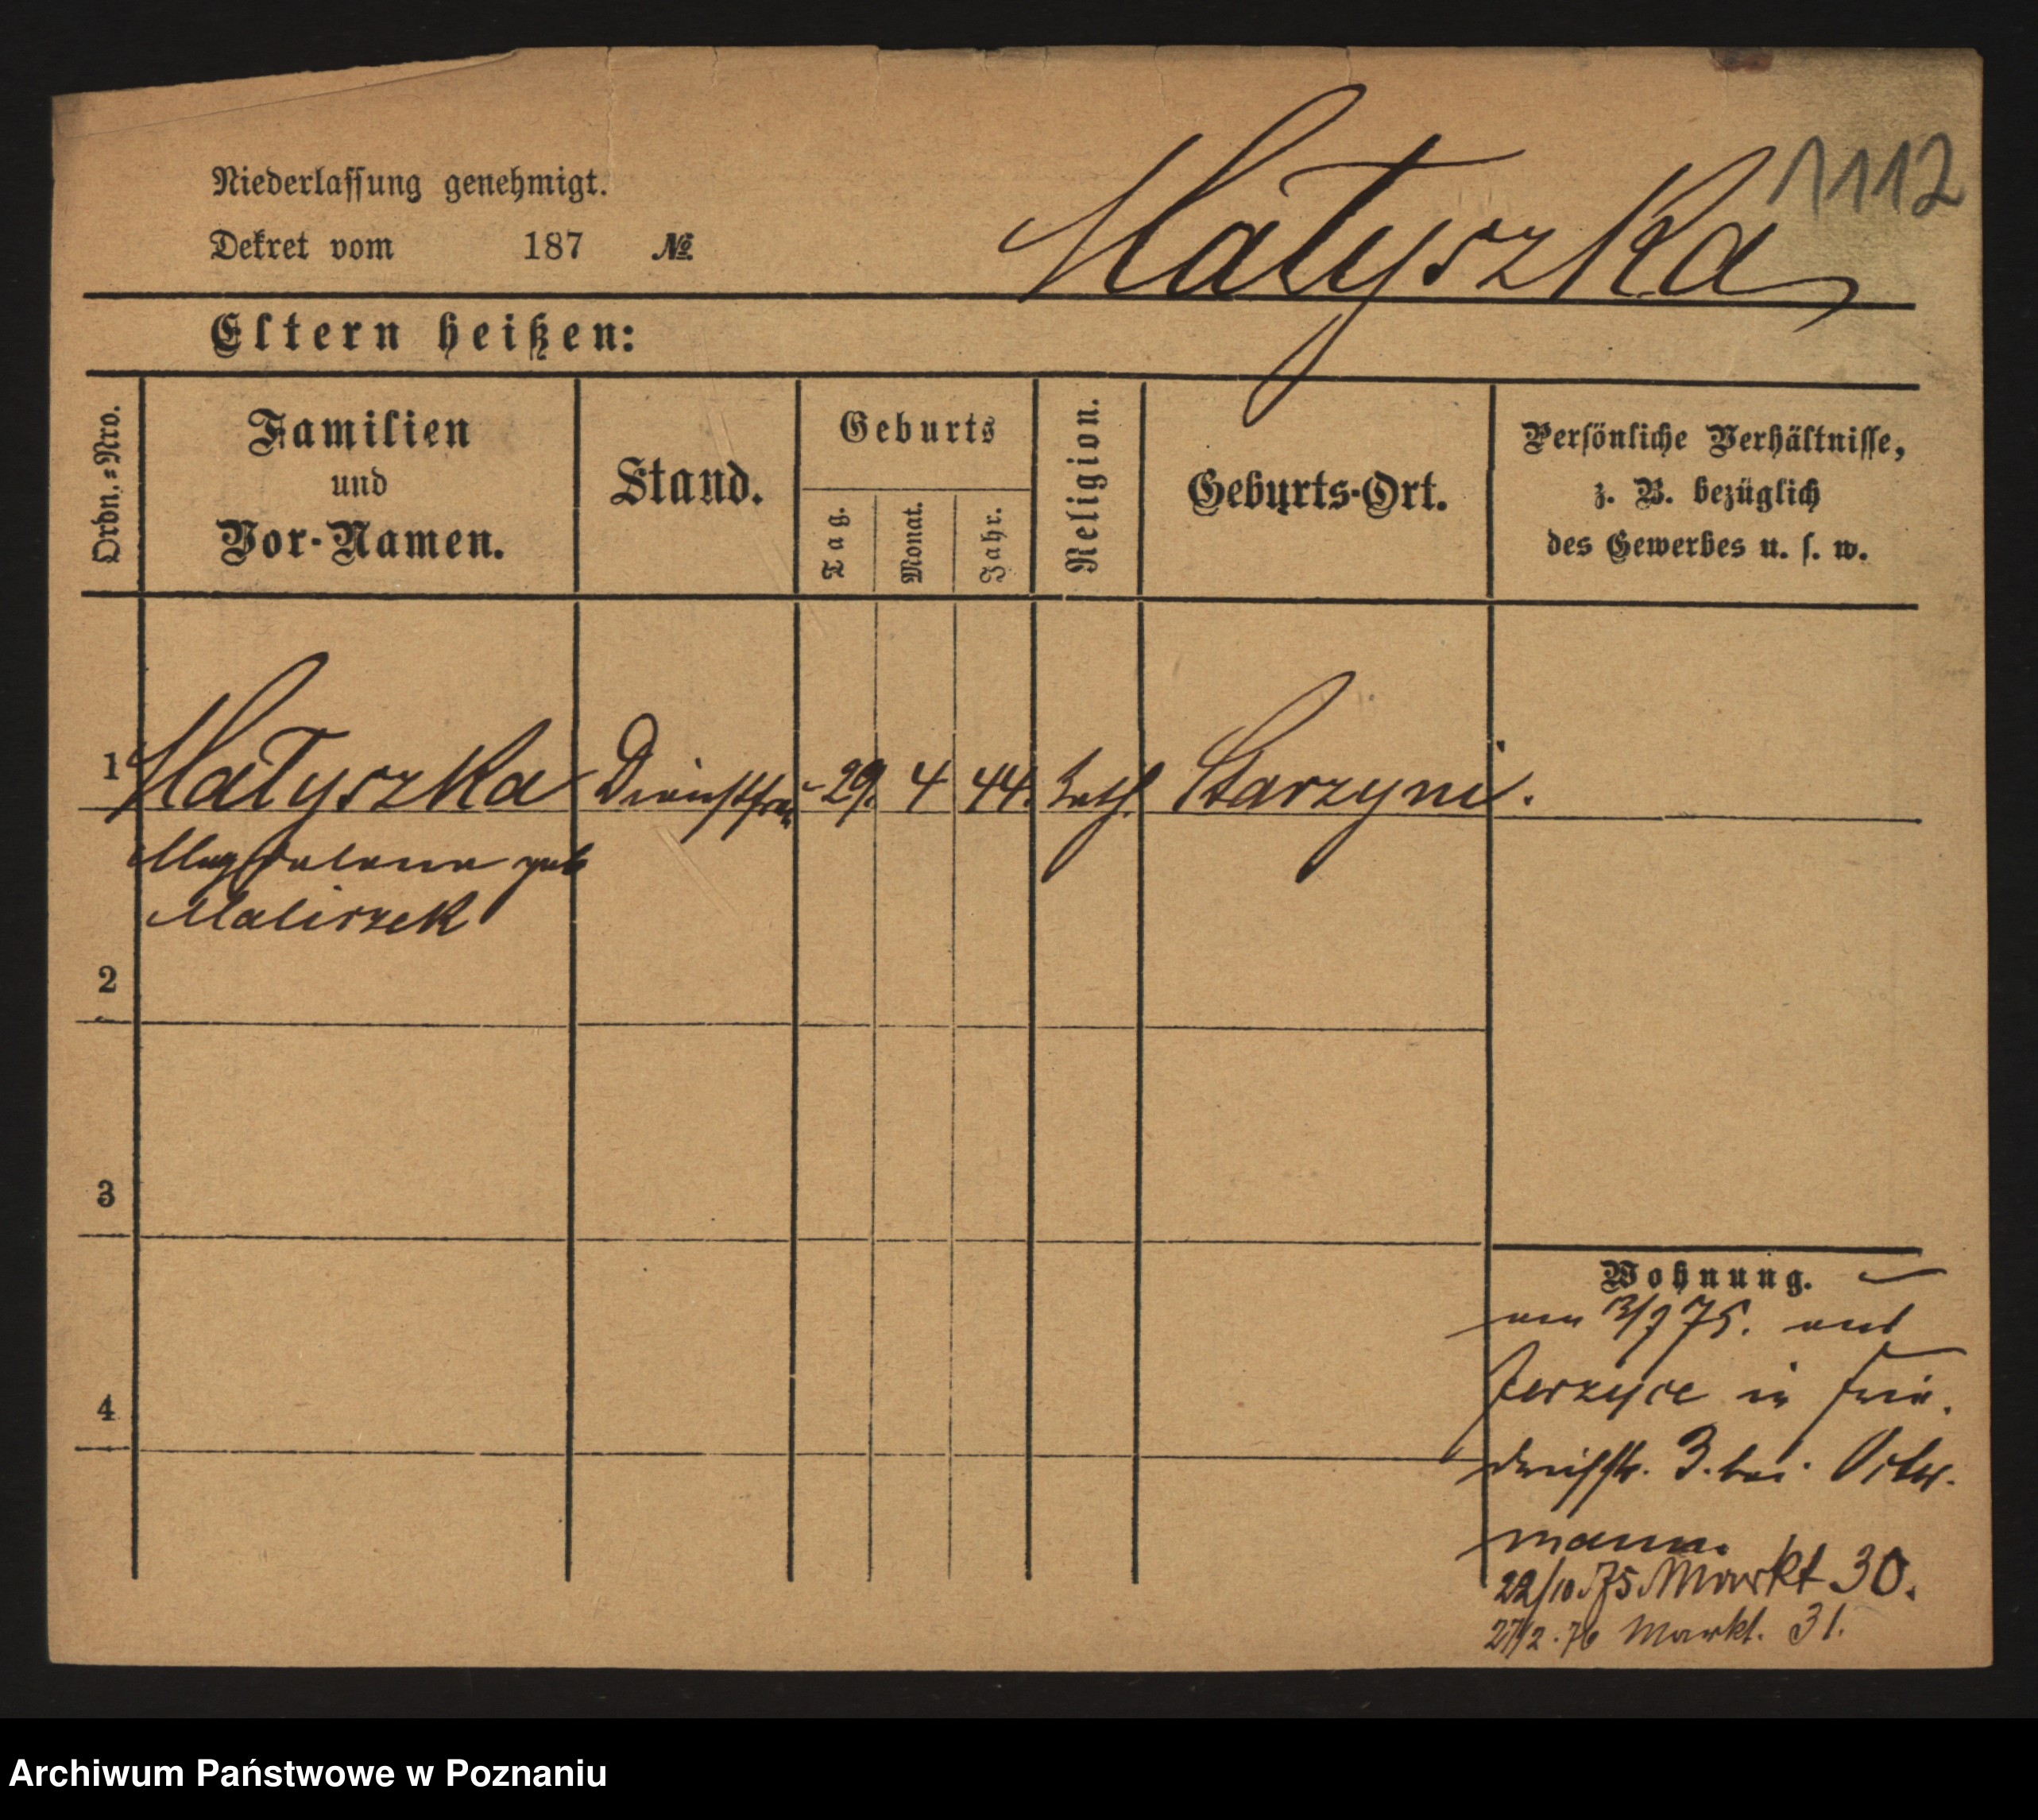 1112
Niederlassung genehmigt.
Dekret vom 187 №
Matyszka
Eltern heißen:
Ordn.-Nro.
Familien
und
Vor-Namen.
Stand.
Geburts
Tag.
Monat.
Jahr.
Religion.
Geburts-Ort.
Persönliche Verhältnisse,
z. B. bezüglich
des Gewerbes u. s. w.
1 Matyszka Dienstfrau 29. 4 44. kath. Starzyni.
Magdalena geb
Maliszek
2
3
4
Wohnung.
75. aus
Jerzyce in Frie
drichstr. 3. bei
mann.
22/10 75 Markt 30.
27/2. 76 Markt. 31.
Archiwum Państwowe w Poznaniu